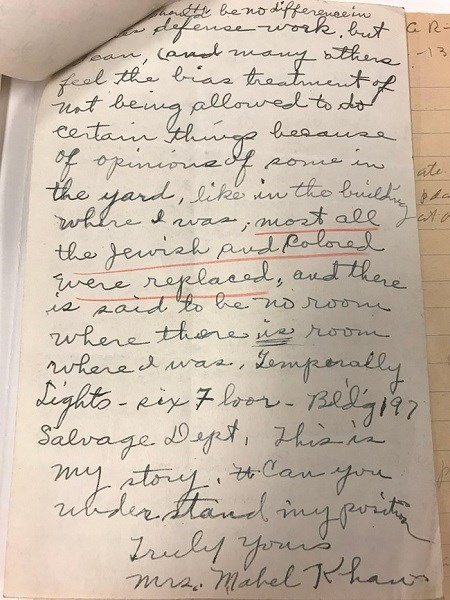 be no difference in
defense work, but
can, (and many others
feel the bias treatment of
not being allowed to do
certain things because
of opinions of some in
the yard, like in the building
where I was, most all
the Jewish and Colored
were replaced, and there
is said to be no room
where there is room
where I was. Temporally
Lights - six Floor - Bldg 197
Salvage Dept. This is
my story. Can you
understand my position
Truly yours
Mrs. Mabel Khaw